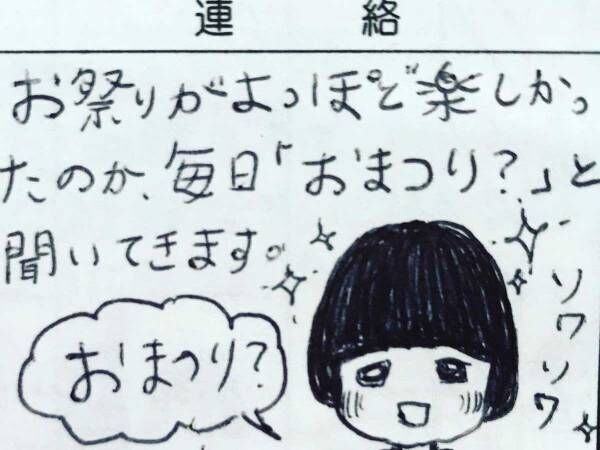 連絡
お祭りがよっぽど楽しかっ
たのか、毎日「おまつり？」と
聞いてきます。
おまつり？
ソワソワ